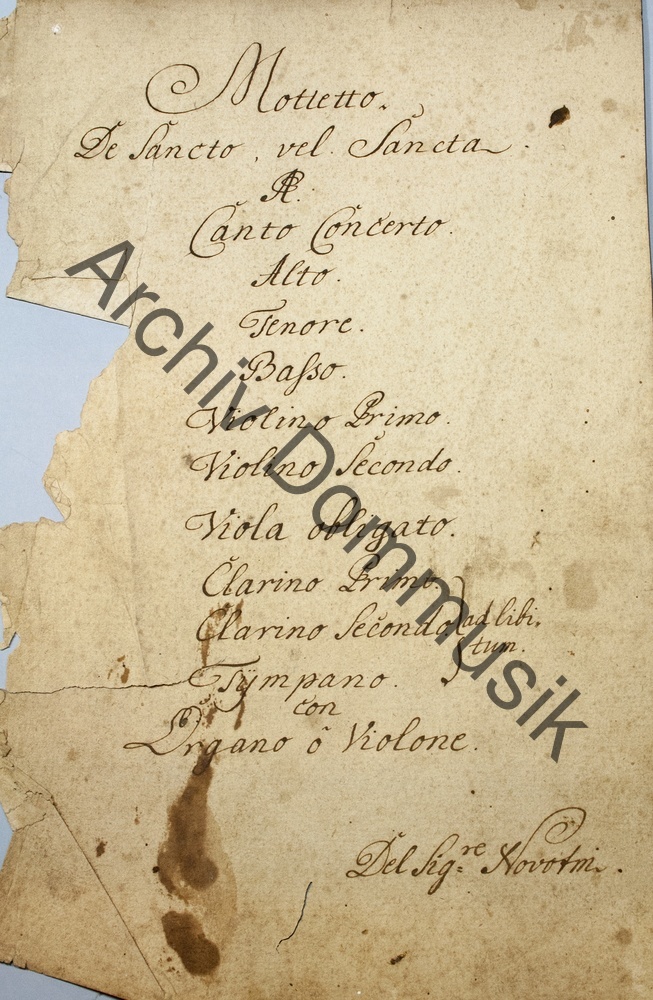 Motletto.
De Sancto, vel Sancta.
à
Canto Concerto.
Alto.
Tenore.
Basso.
Violino Primo.
Violino Secondo.
Viola obligato.
Clarino Primo.
Clarino Secondo. ad libi,
tum.
Tÿmpano.
con
Organo ô Violone.
Del Sig:re Novotni.
Archiv Dommusik